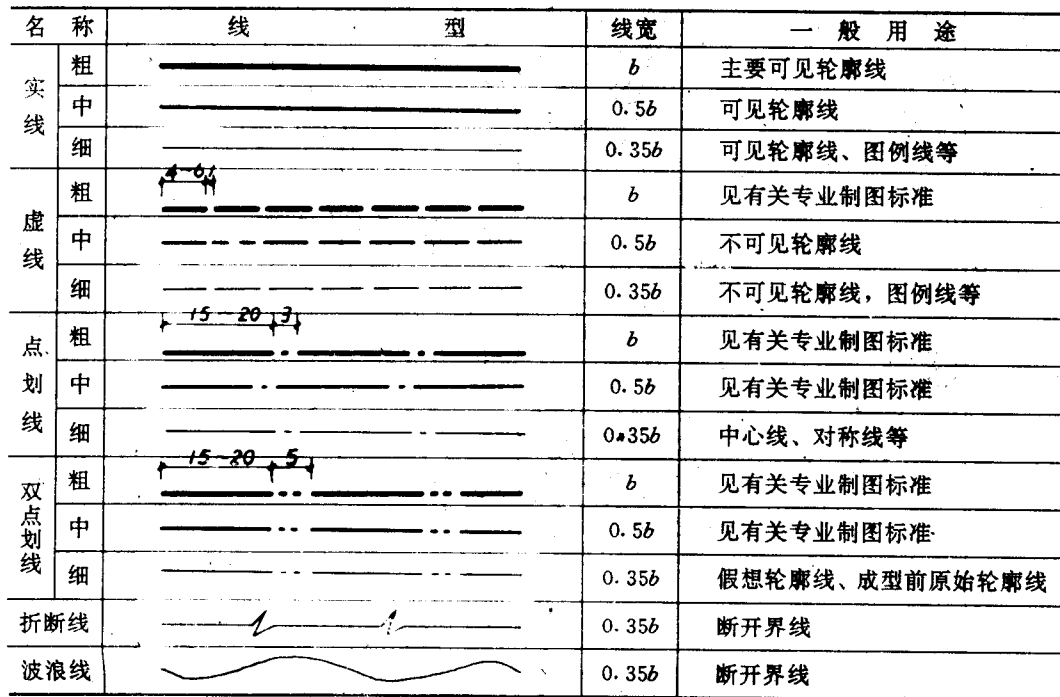 名 称 线 型 线宽 一 般 用 途
实线 粗 b 主要可见轮廓线
中 0.5b 可见轮廓线
细 0.35b 可见轮廓线、图例线等
虚线 粗 4-6 1 b 见有关专业制图标准
中 0.5b 不可见轮廓线
细 0.35b 不可见轮廓线，图例线等
点划线 粗 15-20 3 b 见有关专业制图标准
中 0.5b 见有关专业制图标准
细 0.35b 中心线、对称线等
双点划线 粗 15-20 5 b 见有关专业制图标准
中 0.5b 见有关专业制图标准
细 0.35b 假想轮廓线、成型前原始轮廓线
折断线 0.35b 断开界线
波浪线 0.35b 断开界线